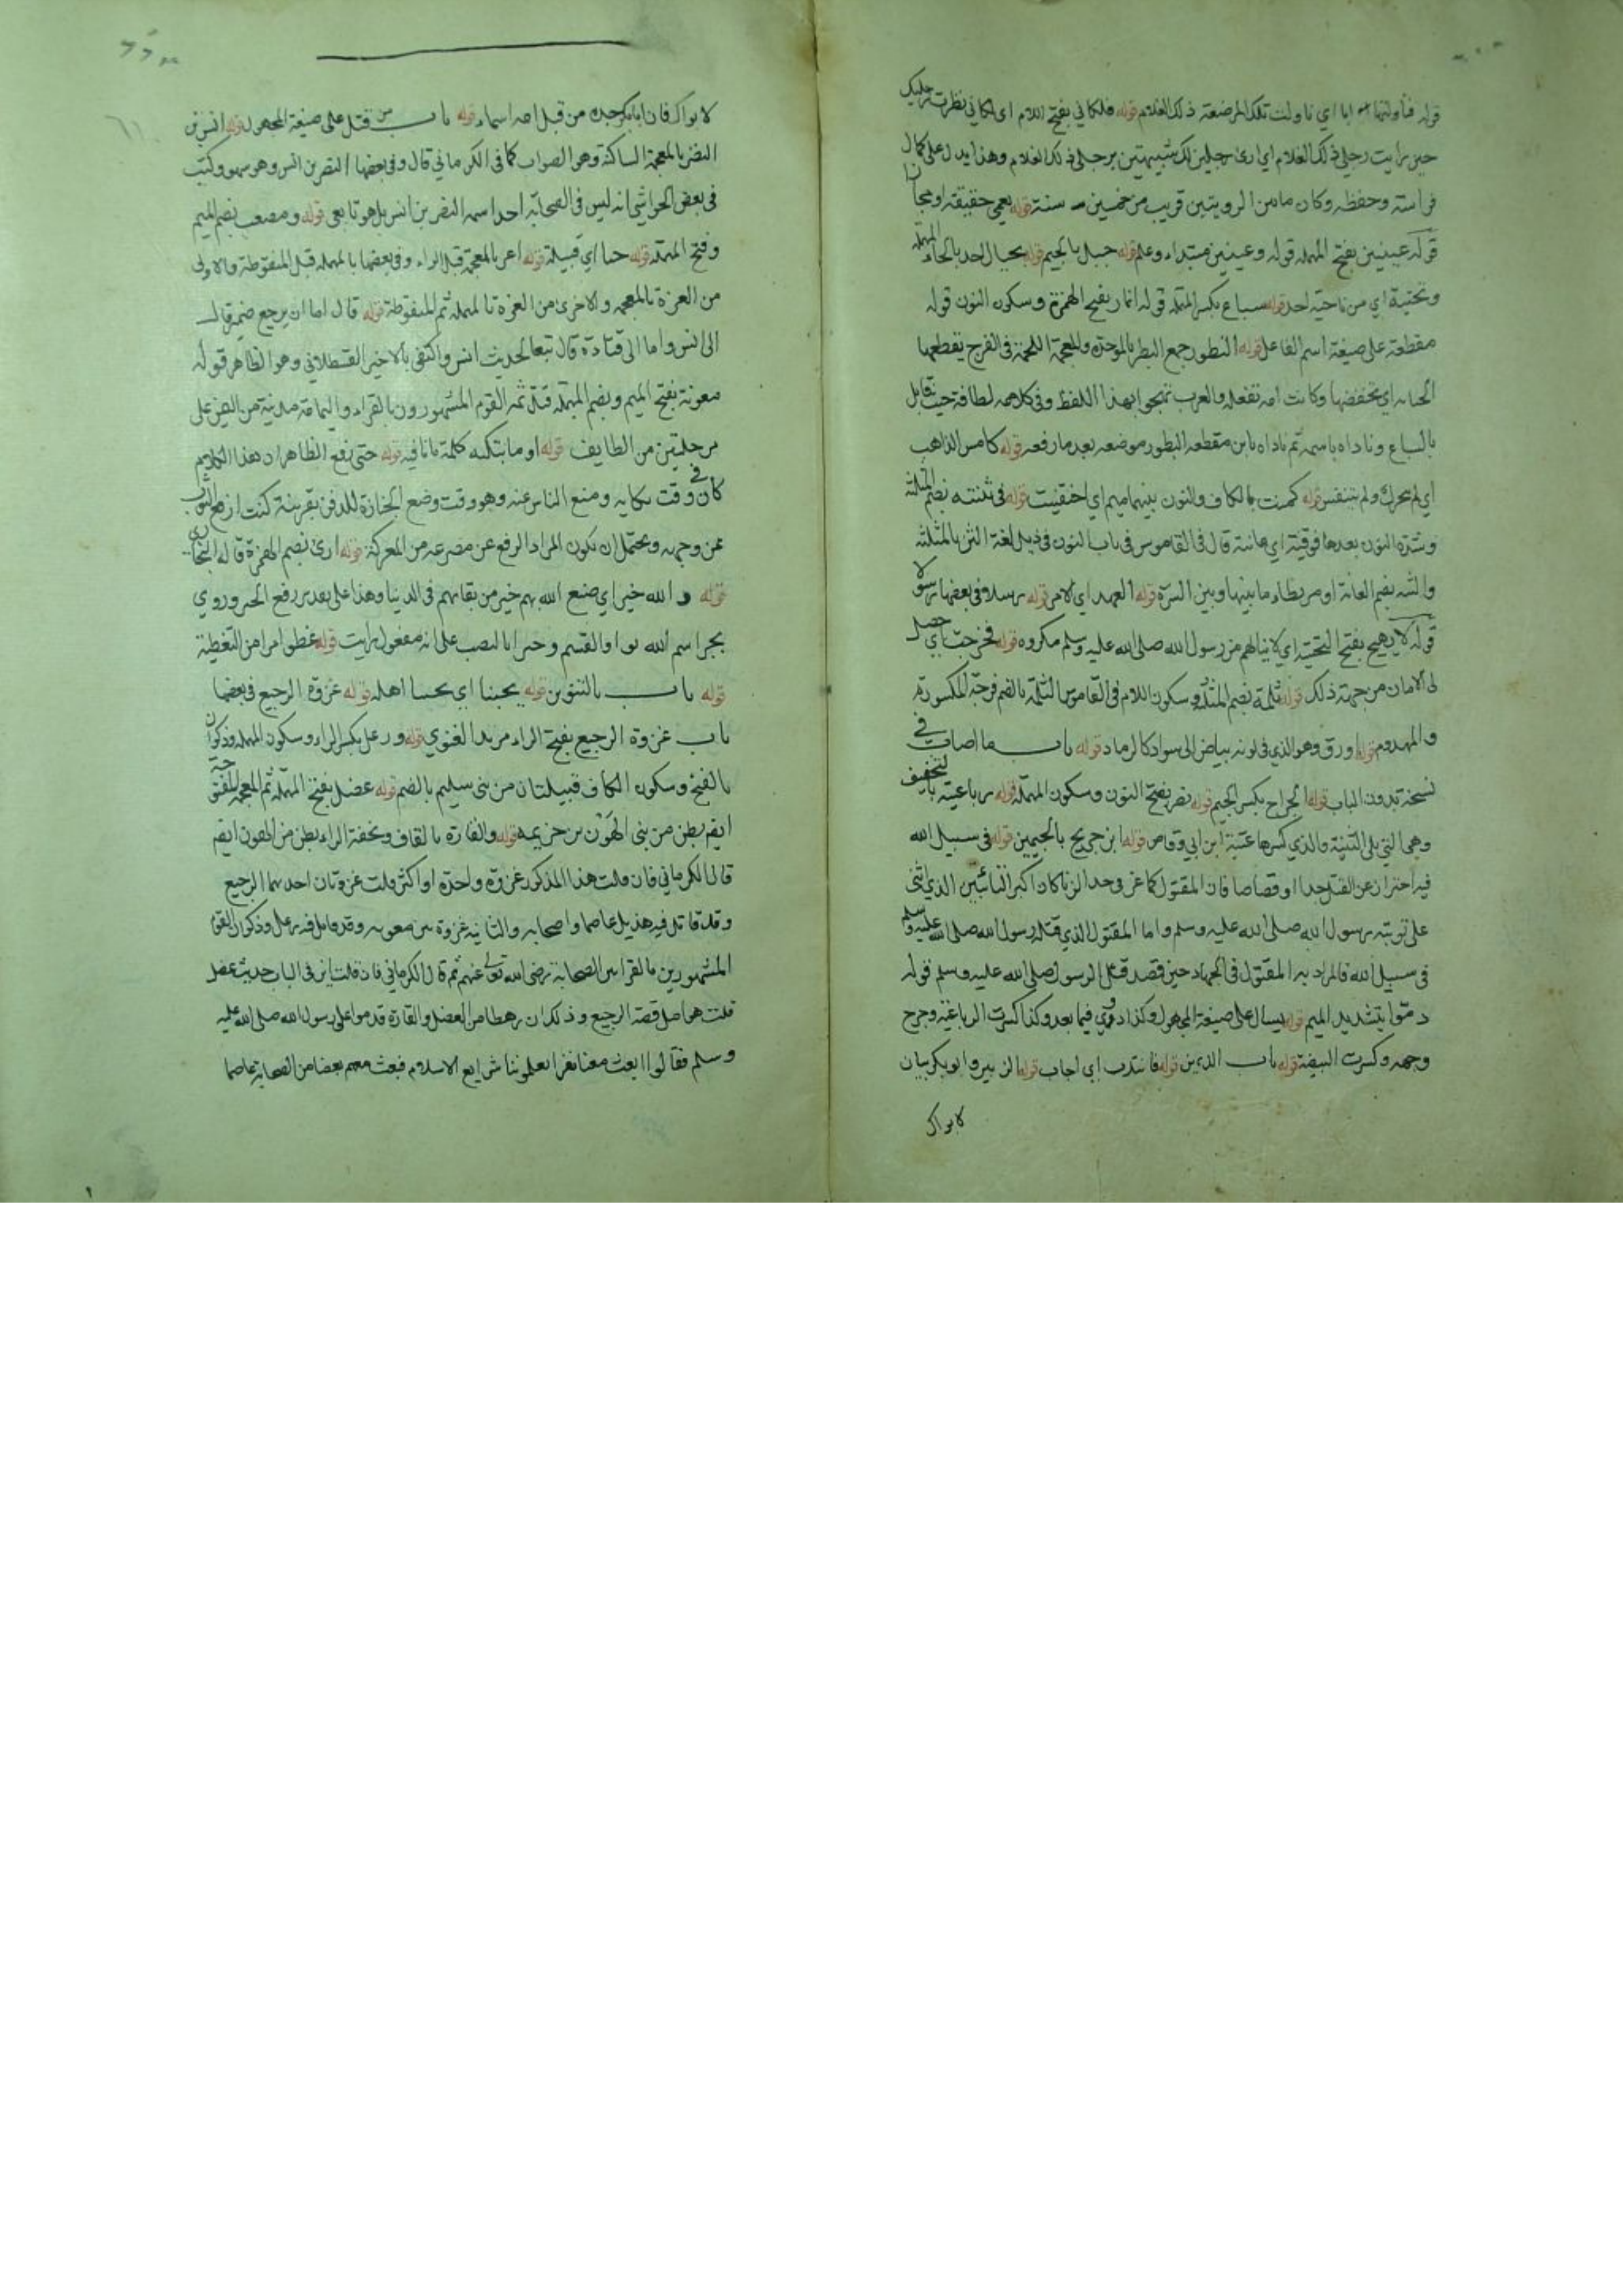 قوله فناولتها اياه اي ناولت تلك المرضعة ذلك الغلام قوله فلكاني بفتح اللام اي لكاني نظرت رجليك
حين رايت رجلي ذلك الغلام اي ارى رجلين لك شبيهتين برجلي ذلك الغلام وهذا يدل على كمال
فراسته وحفظه وكان ما من الرويتين قريب من خمسين سنة قوله يعمي حقيقة او مجازا
قوله عينين بفتح المهملة قوله وعينين مبتداء وعلم قوله جبل بالجيم قوله بحيال احد بالحاء المهملة
وتحتية اي من ناحية احد قوله سباع بكسر المهملة قوله انمار بفتح الهمزة وسكون النون قوله
مقطعة على صيغة اسم الفاعل قوله البظور جمع البظر بالموحدة والمعجمة اللحمة في الفرج يقطعها
اي تخفضها وكانت امه تفعله والعرب بهذا اللفظ وفي كلامه لطافة حيث قابل
بالسباع وناداه باسمه ثم ناداه بابن مقطعة البظور موضعه بعد ما رفعه قوله كامس الذاهب
اي لم يتحرك ولم يتنفس قوله كمنت بالكاف والنون بينهما ميم اي اختفيت قوله في ثنته بضم المثلثة
وشدة النون بعدها فوقية اي عانته قال في القاموس في باب النون في ذيل لغة الثن بالمثلثة
والثنة بضم العانة او مريطاء ما بينها وبين السرة قوله العهد اي الامر قوله رسلا وفي بعضها رسولا
قوله لا يهيج بفتح التحتية اي لا ينالهم من رسول الله صلى الله عليه وسلم مكروه قوله فخرجت اي حصل
لي الامان من جهة ذلك قوله ثلمة بضم المثلثة وسكون اللام في القاموس الثلمة بالضم فرجة المكسورة
والمهدوم قوله اورق وهو الذي في لونه بياض الى سواد كالرماد قوله باب ما اصاب في
نسخة بدون الباب قوله الجراح بكسر الجيم قوله نضر بفتح النون وسكون المهملة قوله رباعيته بالتخفيف
وهي التي يلي الثنية والذي كسرها عتبة ابن ابي وقاص قوله ابن جريج بالجيمين قوله في سبيل الله
فيه احتراز عن القتل حدا او قصاصا فان المقتول كماعز في حد الزنا كان اكبر التائبين الذي اثنى
على توبته رسول الله صلى الله عليه وسلم واما المقتول الذي قتله رسول الله صلى الله عليه وسلم
في سبيل الله فالمراد به المقتول في الجهاد حين قصد قتل الرسول صلى الله عليه وسلم قوله
دموا بتشديد الميم قوله يسال على صيغة المجهول وكذا دووي فيما بعد وكذا كسرت الرباعية وجرح
وجهه وكسرت البيضة قوله باب الذين قوله فانتدب اي اجاب قوله الزبير وابو بكر بيان
لابواك
لابواك فان ابابكر جده من قبل امه اسماء قوله باب من قتل على صيغة المجهول قوله انس بن
النضر بالمعجمة الساكنة وهو الصواب كما في الكرماني قال وفي بعضها النضر بن انس وهو سهو وكتب
في بعض الحواشي انه ليس في الصحابة احد اسمه النضر بن انس بل هو تابعي قوله ومصعب بضم الميم
وفتح المهملة قوله حيا اي قبيلة قوله اعز بالمعجمة قبل الراء وفي بعضها بالمهملة قبل المنقوطة والاولى
من الغرة بالمعجمة والاخرى من العزة بالمهملة ثم المنقوطة قوله قال اما ان يرجع ضمير قال
الى انس واما الى قتادة قال تبعا لحديث انس واكتفى بالاخير القسطلاني وهو الظاهر قوله
معونة بفتح الميم وبضم المهملة قتل ثمه القوم المشهورون بالقراء واليمامة مدينة من اليمن على
مرحلتين من الطايف قوله او ما تبكيه كلمة ما نافية قوله حتى رفع الظاهر ان هذا الكلام
كان في وقت بكايه ومنع الناس عنه وهو وقت وضع الجنازة للدفن بقرينة كنت ارفع الثوب
عن وجهه ويحتمل ان يكون المراد الرفع عن مصرعه من المعركة قوله ارى بضم الهمزة قاله البخاري
قوله والله خير اي صنع الله بهم خير من بقائهم في الدنيا وهذا على تقدير رفع الخير وروي
بجر اسم الله بواو القسم وخيرا بالنصب على انه مفعول رايت قوله غطوا امرا من التغطية
قوله باب بالتنوين قوله يحبنا اي يحبنا اهله قوله غزوة الرجيع في بعضها
باب غزوة الرجيع بفتح الراء مرثد الغنوي قوله ورعل بكسر الراء وسكون المهملة وذكوان
بالفتح وسكون الكاف قبيلتان من بني سليم بالضم قوله عضل بفتح المهملة ثم المعجمة المفتوحة
ايضم بطن من بني الهون بن خزيمة قوله والقارة بالقاف وتخفة الراء بطن من الهون ايضم
قال الكرماني فان قلت هذا المذكور غزوة واحدة او اكثر قلت غزوتان احدهما الرجيع
وقد قاتل فيه هذيل عاصما واصحابه والثانية غزوة بير معونه وقد قاتل فيه رعل وذكوان القوم
المشهورين بالقراء من الصحابة رضي الله تعالى عنهم ثم قال الكرماني فان قلت اين في الباب حديث عضل
قلت هما اصل قصة الرجيع وذلك ان رهطا من العضل والقارة قدموا على رسول الله صلى الله عليه
وسلم فقالوا ابعث معنا نفرا يعلموننا شرايع الاسلام فبعث معهم بعضا من الصحابة عاصما